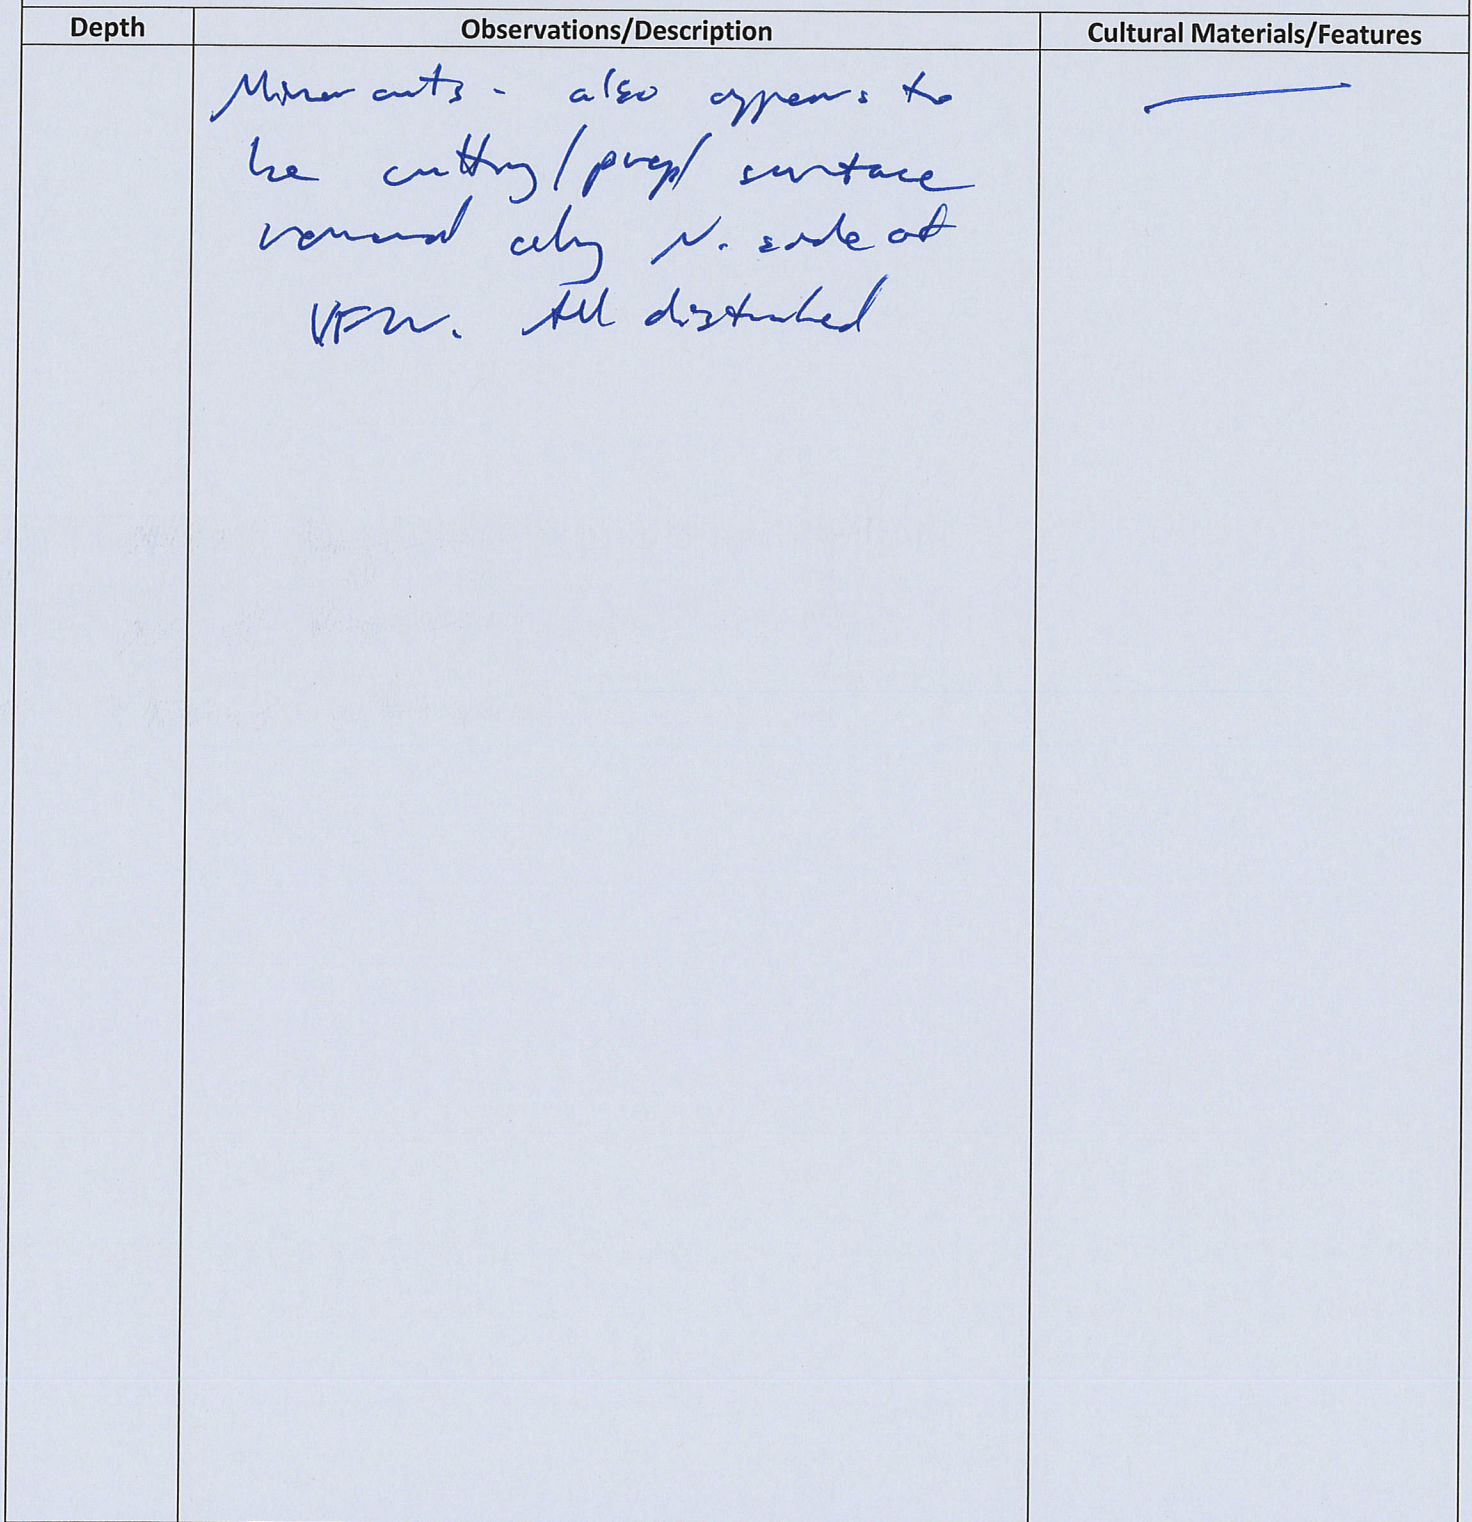 Depth Observations/Description Cultural Materials/Features
Minor cuts - also appears to
be cutting/prep/ surface
removal along N. side of
VFW. All disturbed